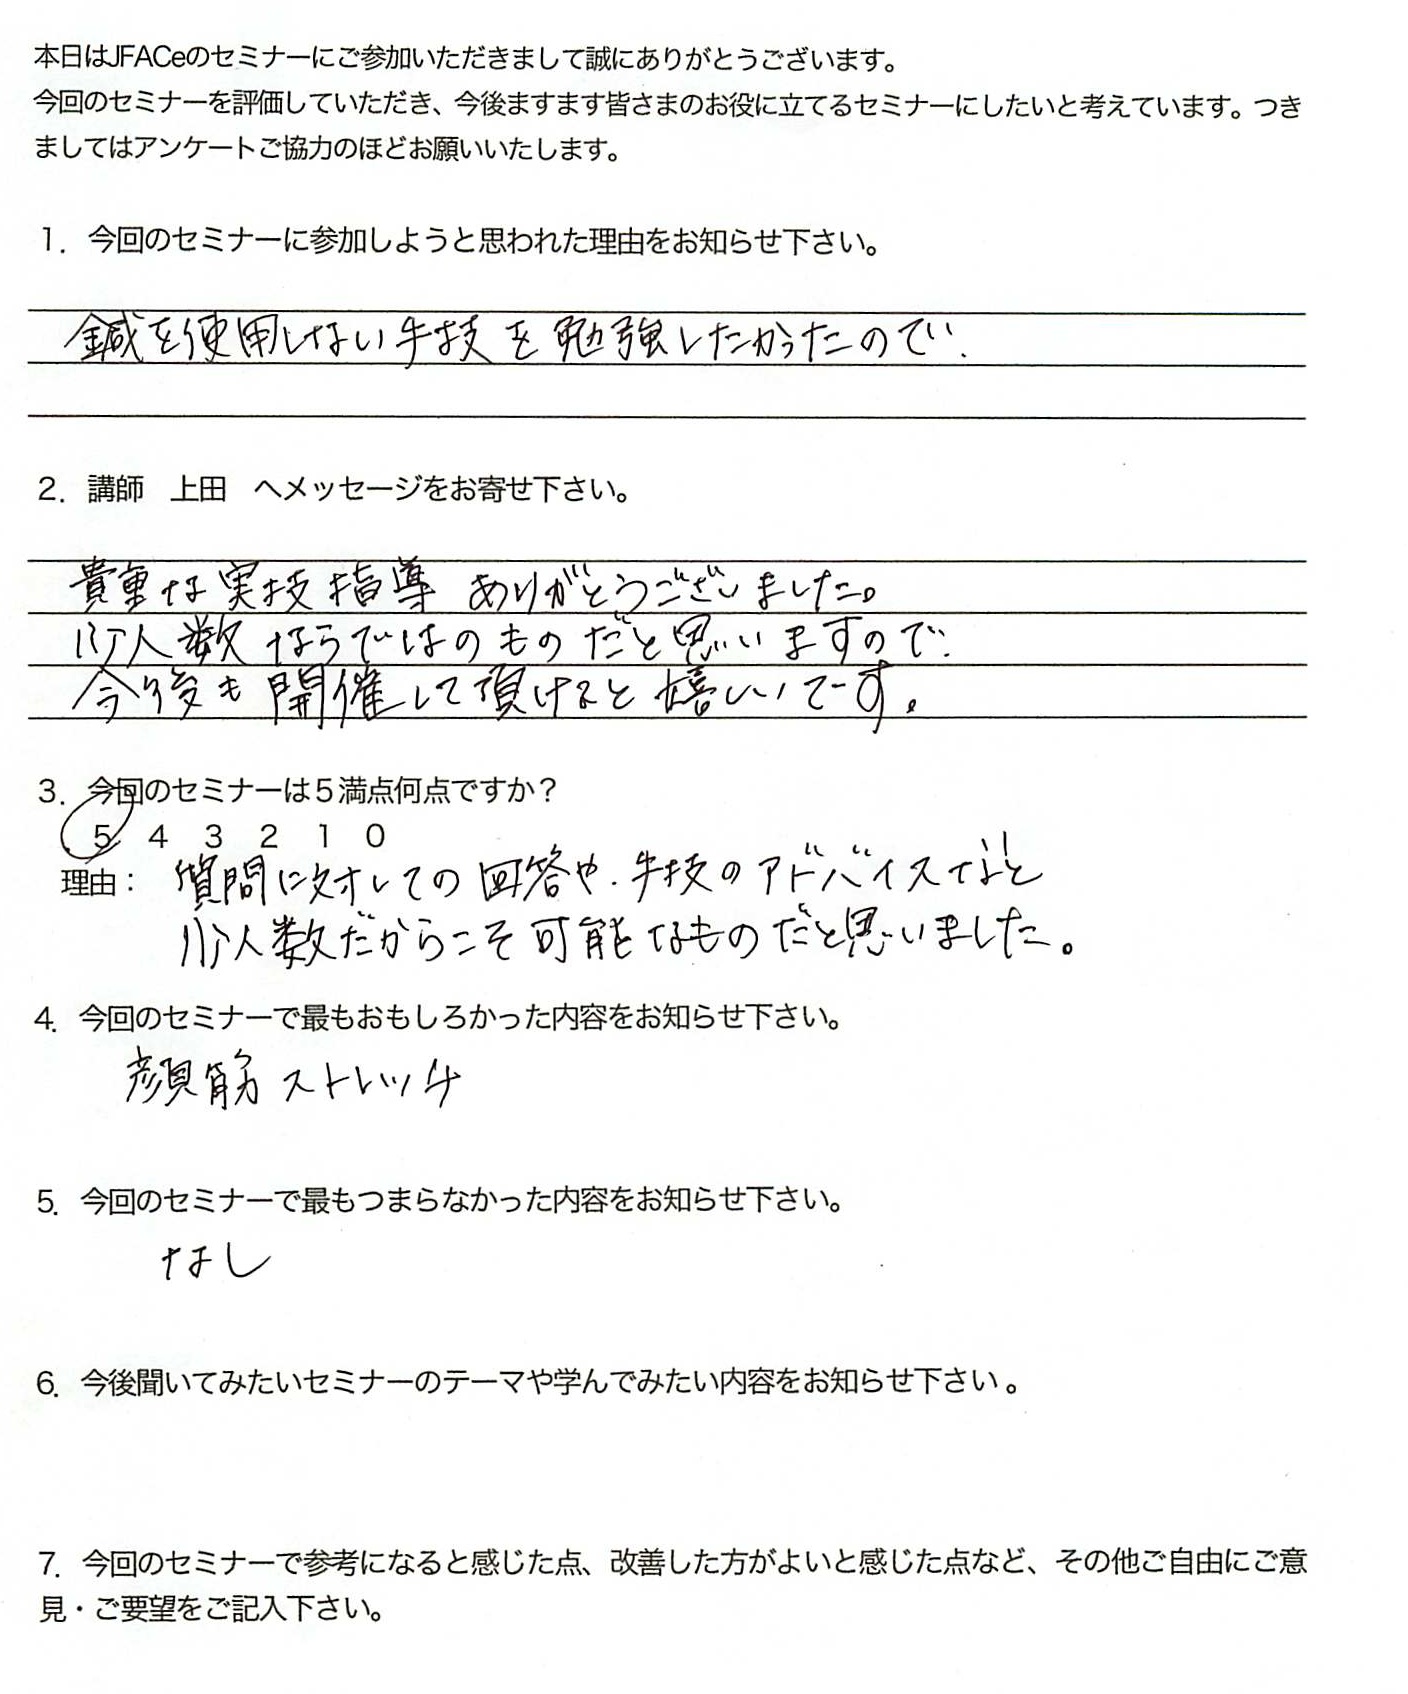 本日はJFACeのセミナーにご参加いただきまして誠にありがとうございます。
今回のセミナーを評価していただき、今後ますます皆さまのお役に立てるセミナーにしたいと考えています。つき
ましてはアンケートご協力のほどお願いいたします。
1．今回のセミナーに参加しようと思われた理由をお知らせ下さい。
鍼を使用しない手技を勉強したかったので.
2．講師　上田　へメッセージをお寄せ下さい。
貴重な実技指導 ありがとうございました。
少人数ならではのものだと思いますので.
今後も開催して頂けると嬉しいです。
3．今回のセミナーは５満点何点ですか？
5　4　3　2　1　0
理由： 質問に対しての回答や.手技のアドバイスなど
少人数だからこそ可能なものだと思いました。
4．今回のセミナーで最もおもしろかった内容をお知らせ下さい。
顔筋ストレッチ
5．今回のセミナーで最もつまらなかった内容をお知らせ下さい。
なし
6．今後聞いてみたいセミナーのテーマや学んでみたい内容をお知らせ下さい 。
7．今回のセミナーで参考になると感じた点、改善した方がよいと感じた点など、その他ご自由にご意
見・ご要望をご記入下さい。